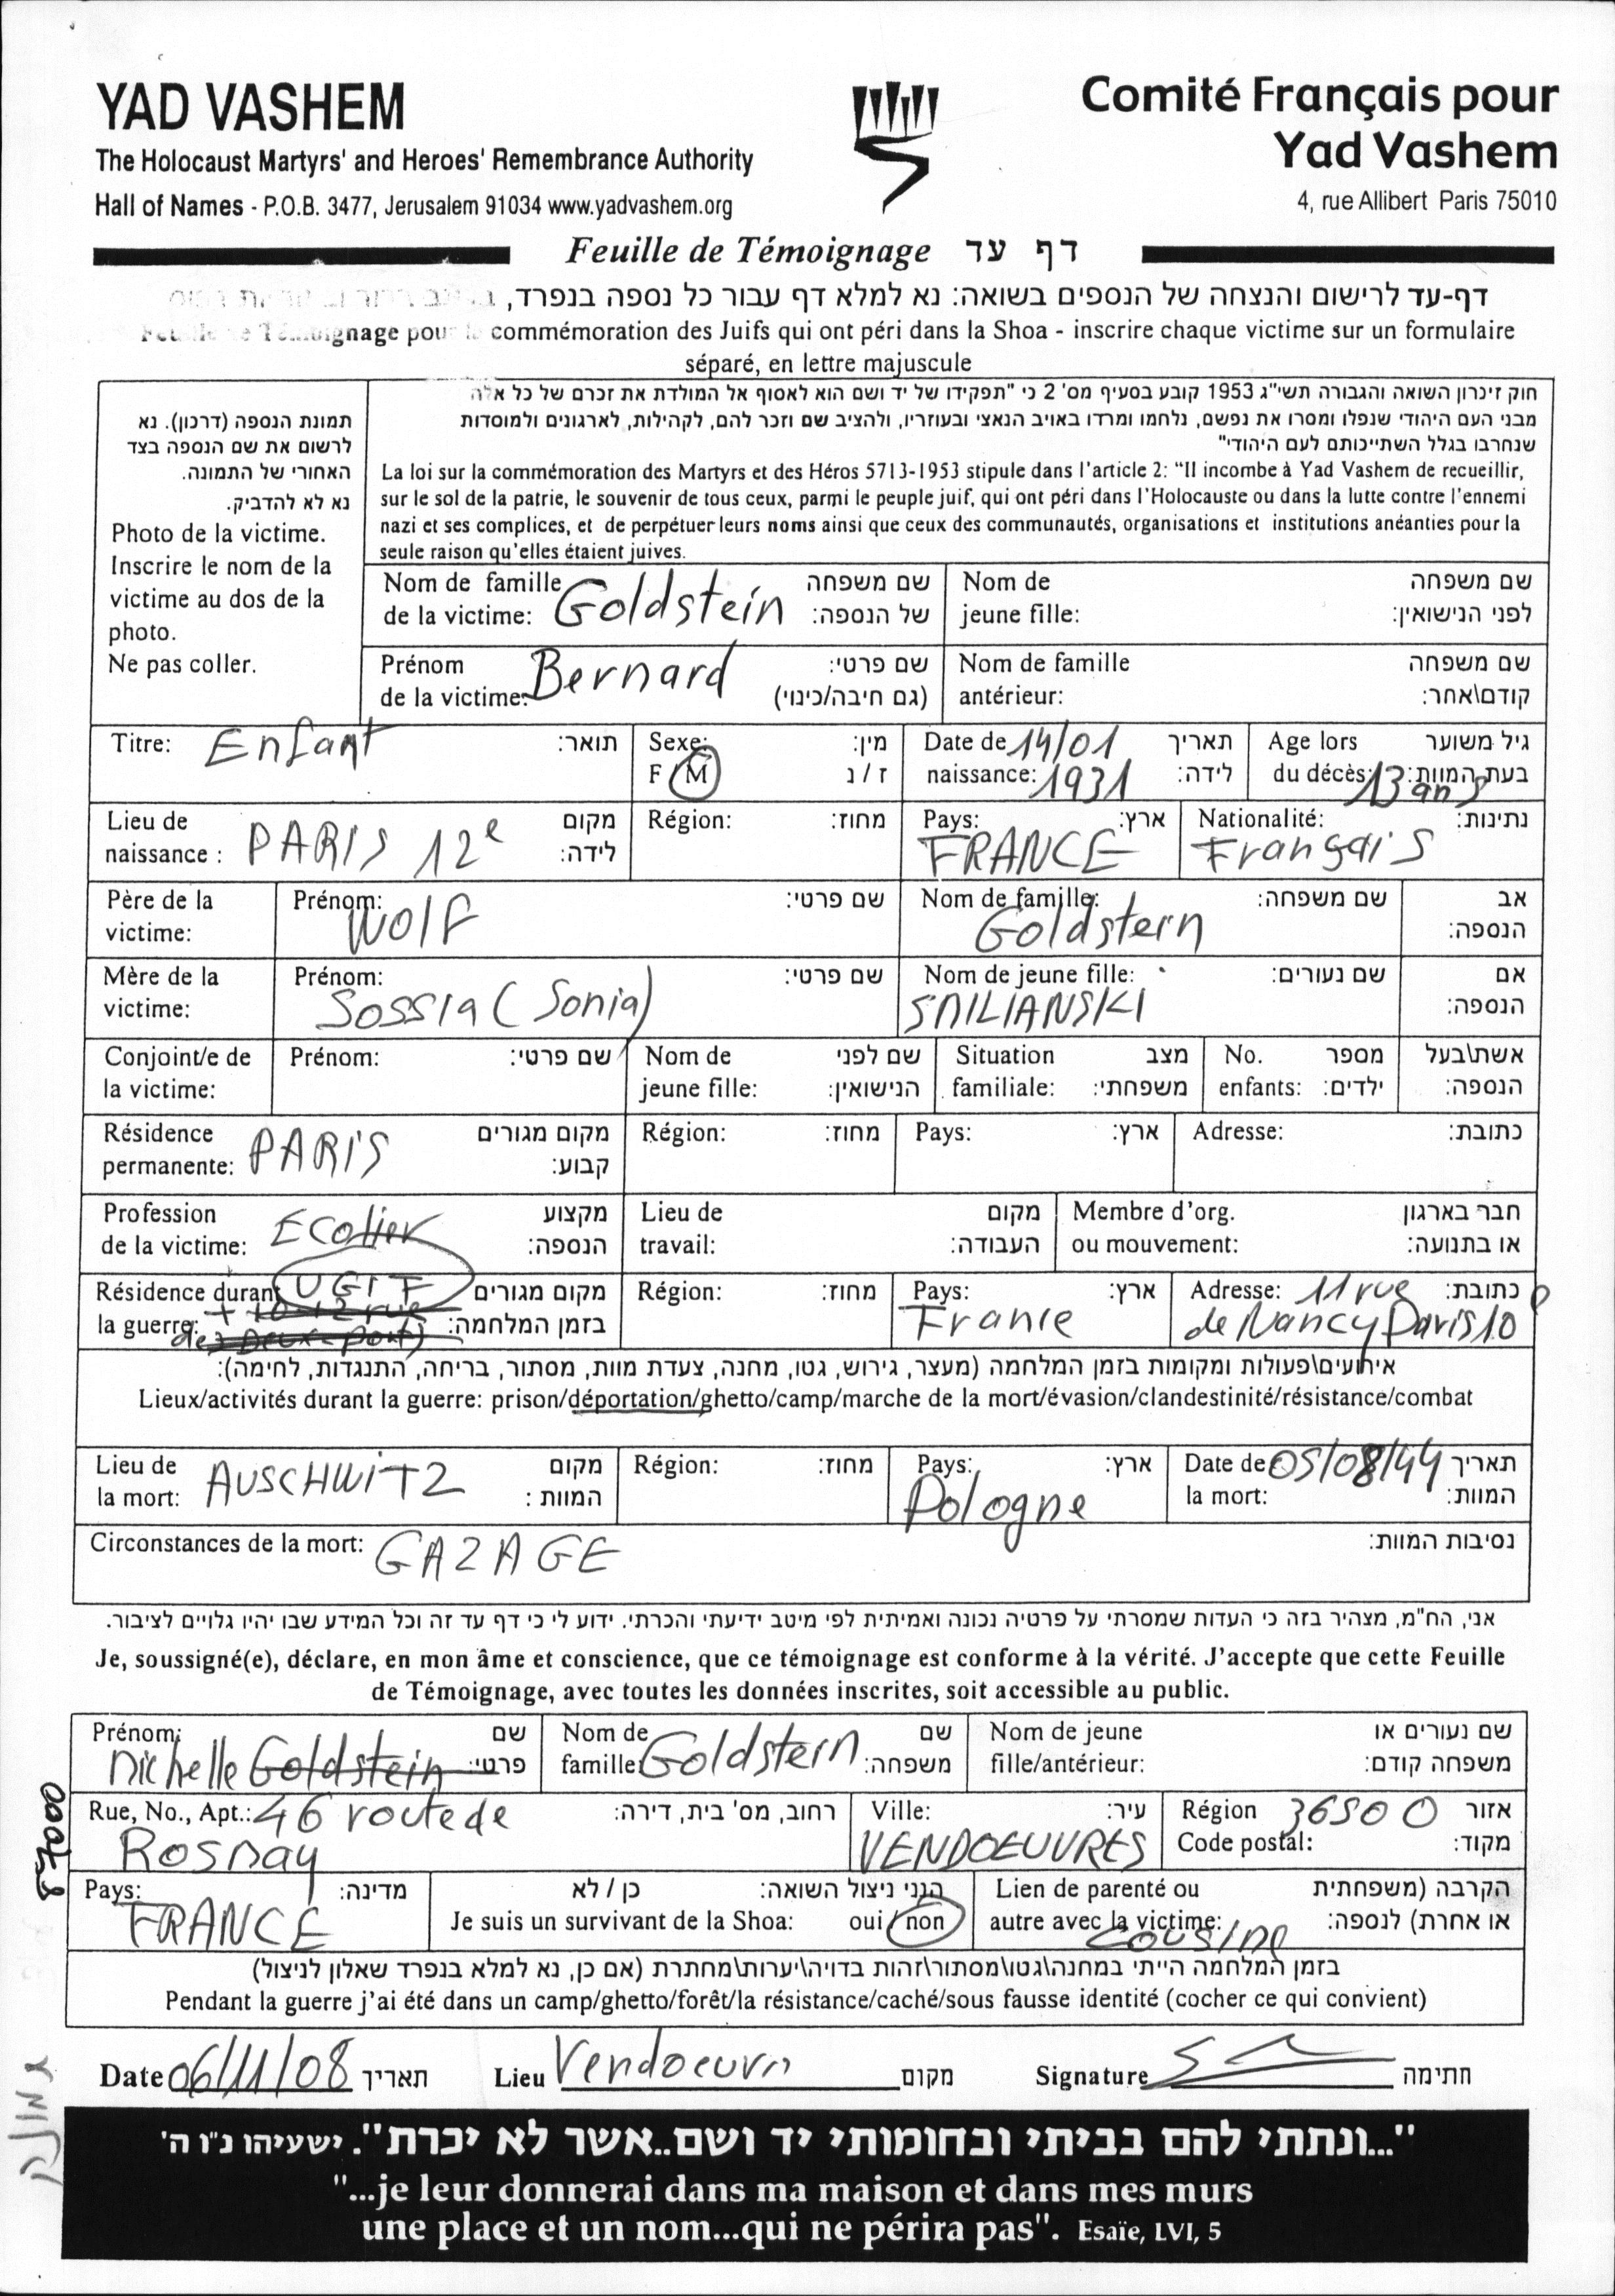 YAD VASHEM
The Holocaust Martyrs' and Heroes' Remembrance Authority
Hall of Names - P.O.B. 3477, Jerusalem 91034 www.yadvashem.org
Comité Français pour
Yad Vashem
4, rue Allibert Paris 75010
Feuille de Témoignage דף עד
דף-עד לרישום והנצחה של הנספים בשואה: נא למלא דף עבור כל נספה בנפרד,
Témoignage pour commémoration des Juifs qui ont péri dans la Shoa - inscrire chaque victime sur un formulaire
séparé, en lettre majuscule
תמונת הנספה (דרכון). נא
לרשום את שם הנספה בצד
האחורי של התמונה.
נא לא להדביק.
Photo de la victime.
Inscrire le nom de la
victime au dos de la
photo.
Ne pas coller.
חוק זיכרון השואה והגבורה תשי"ג 1953 קובע בסעיף מס' 2 כי "תפקידו של יד ושם הוא לאסוף אל המולדת את זכרם של כל אלה
מבני העם היהודי שנפלו ומסרו את נפשם, נלחמו ומרדו באויב הנאצי ובעוזריו, ולהציב שם וזכר להם, לקהילות, לארגונים ולמוסדות
שנחרבו בגלל השתייכותם לעם היהודי"
La loi sur la commémoration des Martyrs et des Héros 5713-1953 stipule dans l'article 2: “Il incombe à Yad Vashem de recueillir,
sur le sol de la patrie, le souvenir de tous ceux, parmi le peuple juif, qui ont péri dans l'Holocauste ou dans la lutte contre l'ennemi
nazi et ses complices, et de perpétuer leurs noms ainsi que ceux des communautés, organisations et institutions anéanties pour la
seule raison qu'elles étaient juives.
Nom de famille Goldstein שם משפחה Nom de שם משפחה
de la victime: של הנספה: jeune fille: לפני הנישואין:
Prénom Bernard שם פרטי: Nom de famille שם משפחה
de la victime: (גם חיבה/כינוי) antérieur: קודם\אחר:
Titre: Enfant תואר: Sexe: מין: Date de 14/01 תאריך Age lors גיל משוער
F / M ז / נ naissance: 1931 לידה: du décès: 13 ans בעת המוות:
Lieu de PARIS 12e מקום Région: מחוז: Pays: ארץ: Nationalité: נתינות:
naissance : לידה: FRANCE Français
Père de la Prénom: שם פרטי: Nom de famille: שם משפחה: אב
victime: Wolf Goldstern הנספה:
Mère de la Prénom: שם פרטי: Nom de jeune fille: שם נעורים: אם
victime: Sossia (Sonia) SMILIANSKI הנספה:
Conjoint/e de Prénom: שם פרטי: Nom de שם לפני Situation מצב No. מספר אשת\בעל
la victime: jeune fille: הנישואין: familiale: משפחתי: enfants: ילדים: הנספה:
Résidence PARIS מקום מגורים Région: מחוז: Pays: ארץ: Adresse: כתובת:
permanente: קבוע:
Profession Ecolier מקצוע Lieu de מקום Membre d'org. חבר בארגון
de la victime: הנספה: travail: העבודה: ou mouvement: או בתנועה:
Résidence durant UGIF מקום מגורים Région: מחוז: Pays: ארץ: Adresse: 11 rue כתובת:
la guerre: des Deux-Ponts) בזמן המלחמה: France de Nancy Paris 10
אירועים\פעולות ומקומות בזמן המלחמה (מעצר, גירוש, גטו, מחנה, צעדת מוות, מסתור, בריחה, התנגדות, לחימה):
Lieux/activités durant la guerre: prison/déportation/ghetto/camp/marche de la mort/évasion/clandestinité/résistance/combat
Lieu de AUSCHWITZ מקום Région: מחוז: Pays: ארץ: Date de 05/08/44 תאריך
la mort: המוות : Pologne la mort: המוות:
Circonstances de la mort: GAZAGE נסיבות המוות:
אני, הח"מ, מצהיר בזה כי העדות שמסרתי על פרטיה נכונה ואמיתית לפי מיטב ידיעתי והכרתי. ידוע לי כי דף עד זה וכל המידע שבו יהיו גלויים לציבור.
Je, soussigné(e), déclare, en mon âme et conscience, que ce témoignage est conforme à la vérité. J'accepte que cette Feuille
de Témoignage, avec toutes les données inscrites, soit accessible au public.
Prénom: שם Nom de שם Nom de jeune שם נעורים או
Michelle Goldstein פרטי: famille: Goldstern משפחה: fille/antérieur: משפחה קודם:
Rue, No., Apt.: 46 route de רחוב, מס' בית, דירה: Ville: עיר: Région 36500 אזור
Rosnay VENDOEUVRES Code postal: מקוד:
Pays: מדינה: כן / לא הנני ניצול השואה: Lien de parenté ou הקרבה (משפחתית
FRANCE Je suis un survivant de la Shoa: oui / non autre avec la victime: cousine או אחרת) לנספה:
בזמן המלחמה הייתי במחנה\גטו\מסתור\זהות בדויה\יערות\מחתרת (אם כן, נא למלא בנפרד שאלון לניצול)
Pendant la guerre j'ai été dans un camp/ghetto/forêt/la résistance/caché/sous fausse identité (cocher ce qui convient)
Date 06/11/08 תאריך Lieu Vendoeuvre מקום Signature חתימה
"...ונתתי להם בביתי ובחומותי יד ושם..אשר לא יכרת". ישעיהו נ"ו ה'
"...je leur donnerai dans ma maison et dans mes murs
une place et un nom...qui ne périra pas". Esaïe, LVI, 5